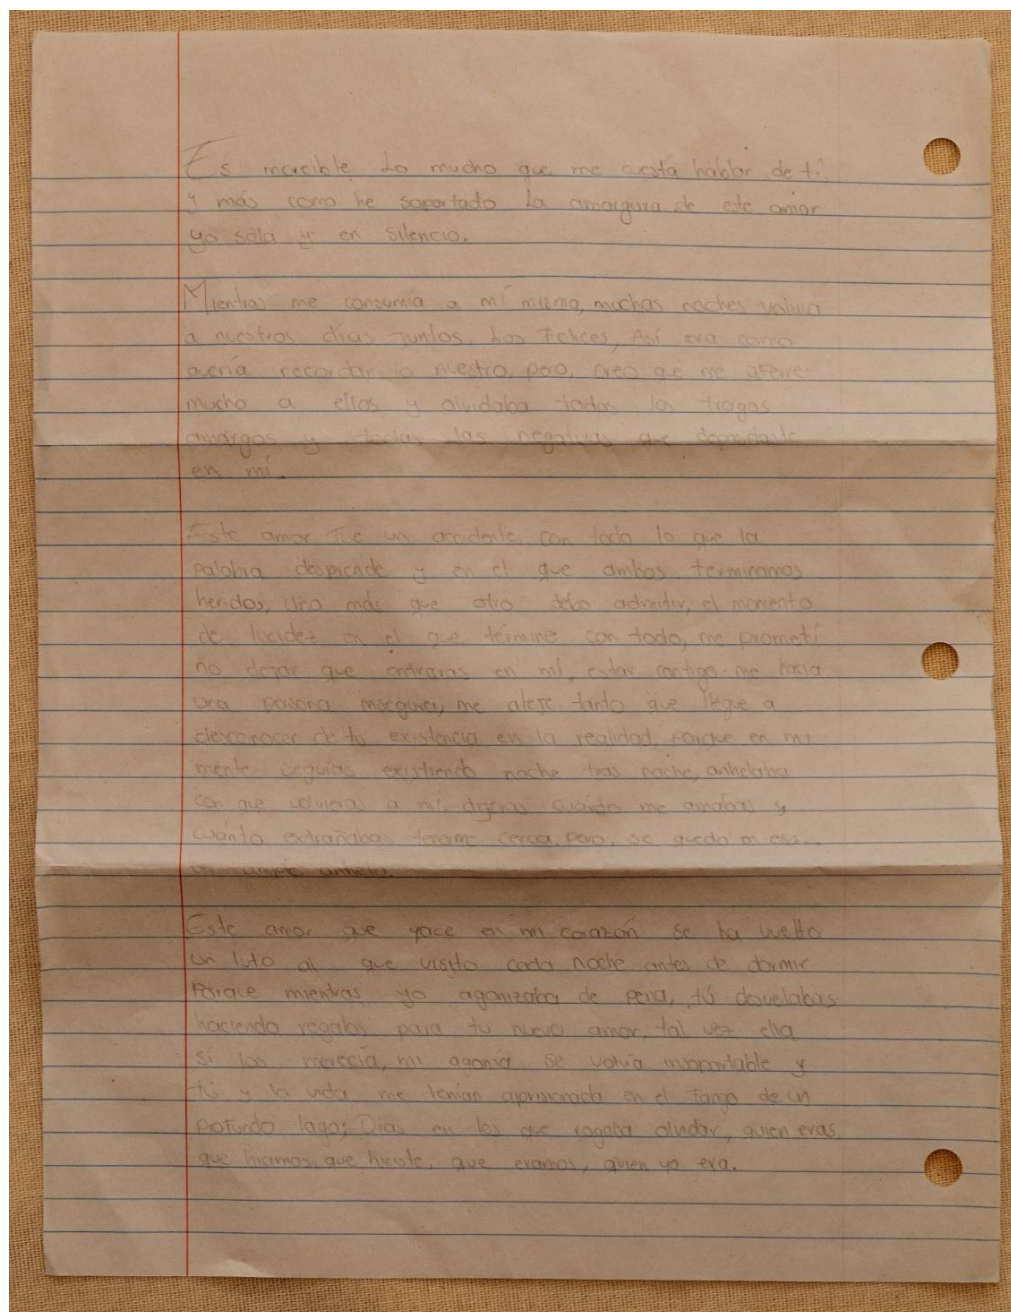 Es increible Lo mucho que me cuesta hablar de ti?
y más como he soportado La amargura de este amor
yo sola y en silencio.
Mientras me consumía a mí misma, muchas noches volvia
a nuestros días juntos. Los Felices, Así era como
quería recordar lo nuestro, pero, creo que me aferre
mucho a ellos y olvidaba todos los tragos
amargos y todas las negativas que depositaste
en mí.
Este amor fue un accidente, con todo lo que la
palabra desprende y en el que ambos terminamos
heridos, uno más que otro debo admitir, el momento
de lucidez en el que términe con todo, me prometí
no dejar que entraras en mí, estar contigo me hacía
una persona insegura, me aleje tanto que llegue a
desconocer de tu existencia en la realidad, porque en mi
mente seguías existiendo noche tras noche, anhelaba
con que volvieras a mí, dijeras cuándo me amabas y
cuánto extrañabas tenerme cerca, pero, se quedo en eso...
un simple anhelo.
Este amor que yace en mi corazón se ha vuelto
un luto al que visito cada noche antes de dormir
Porque mientras yo agonizaba de pena, tú desvelabas
haciendo regalos para tu nuevo amor, tal vez ella
sí los merecía, mi agonía se volvía insoportable y
tú y la vida me tenían aprisionada en el fango de un
profundo lago; Días en los que rogaba olvidar, quien eras,
que hicimos, que hiciste, que eramos, quien yo era.